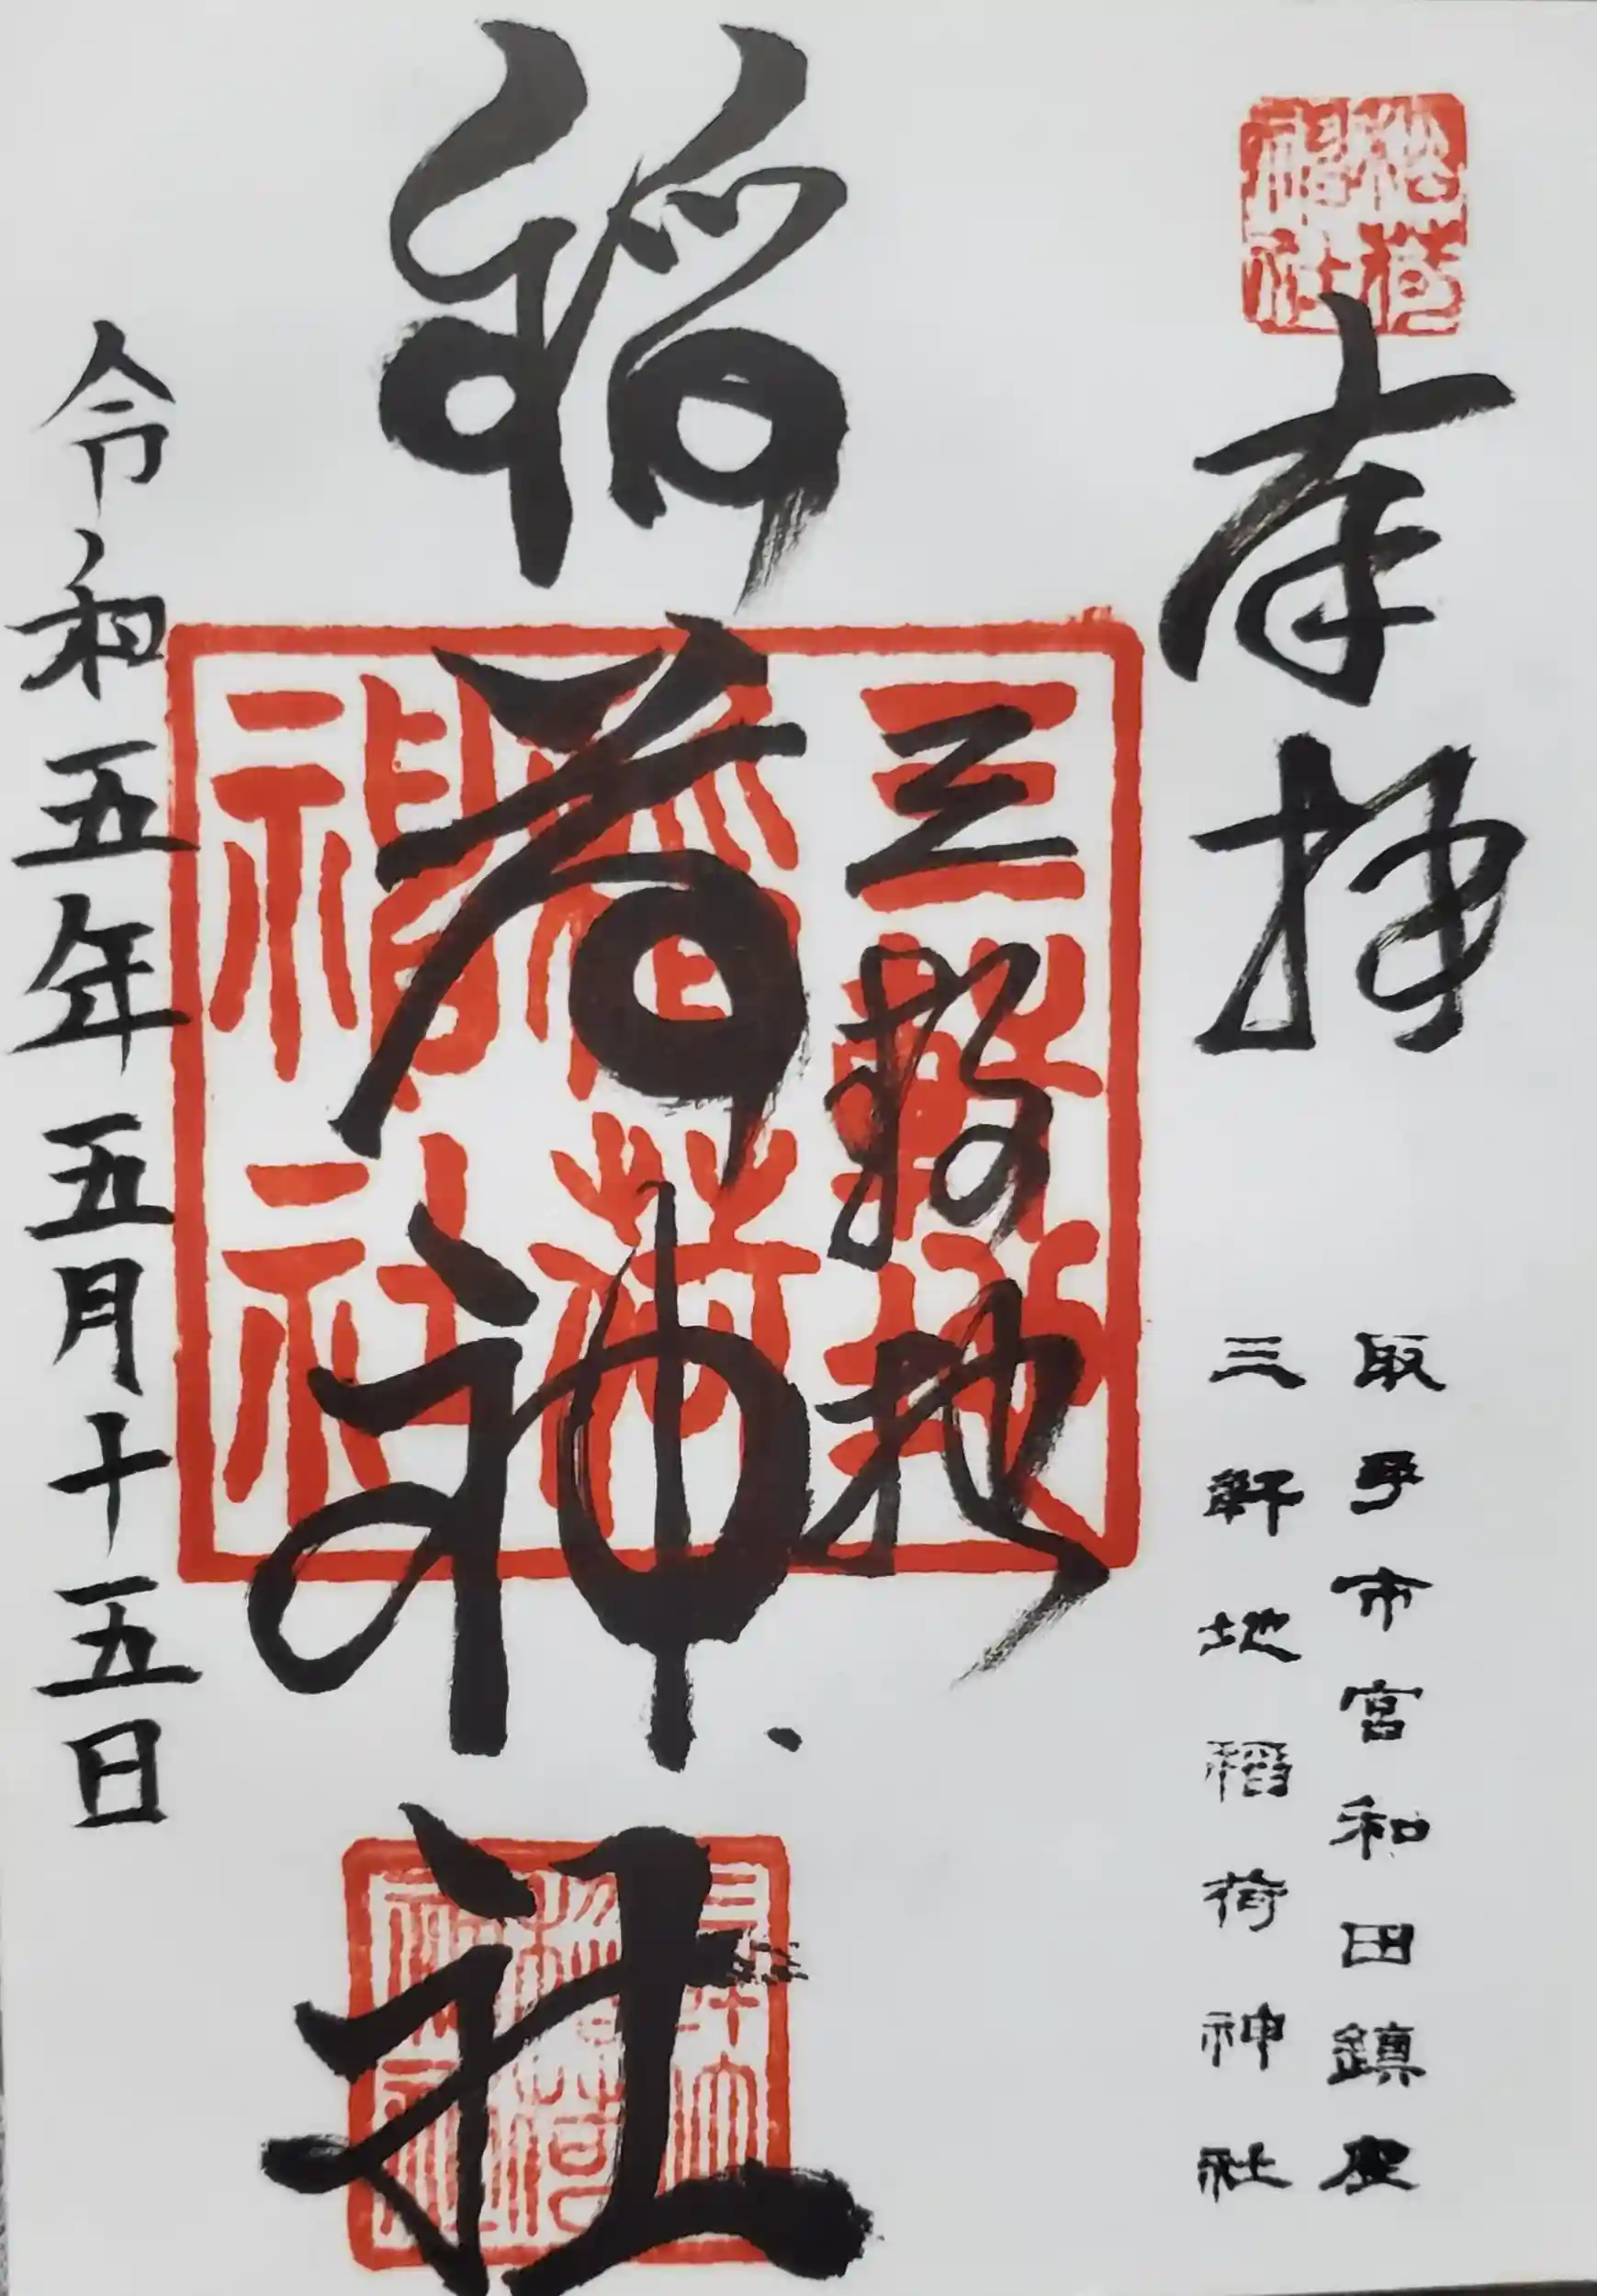 奉拝
取手市宮和田鎮座
三軒地稲荷神社
三軒地
稲荷神社
令和五年五月十五日
稲荷神社
三軒地稲荷神社